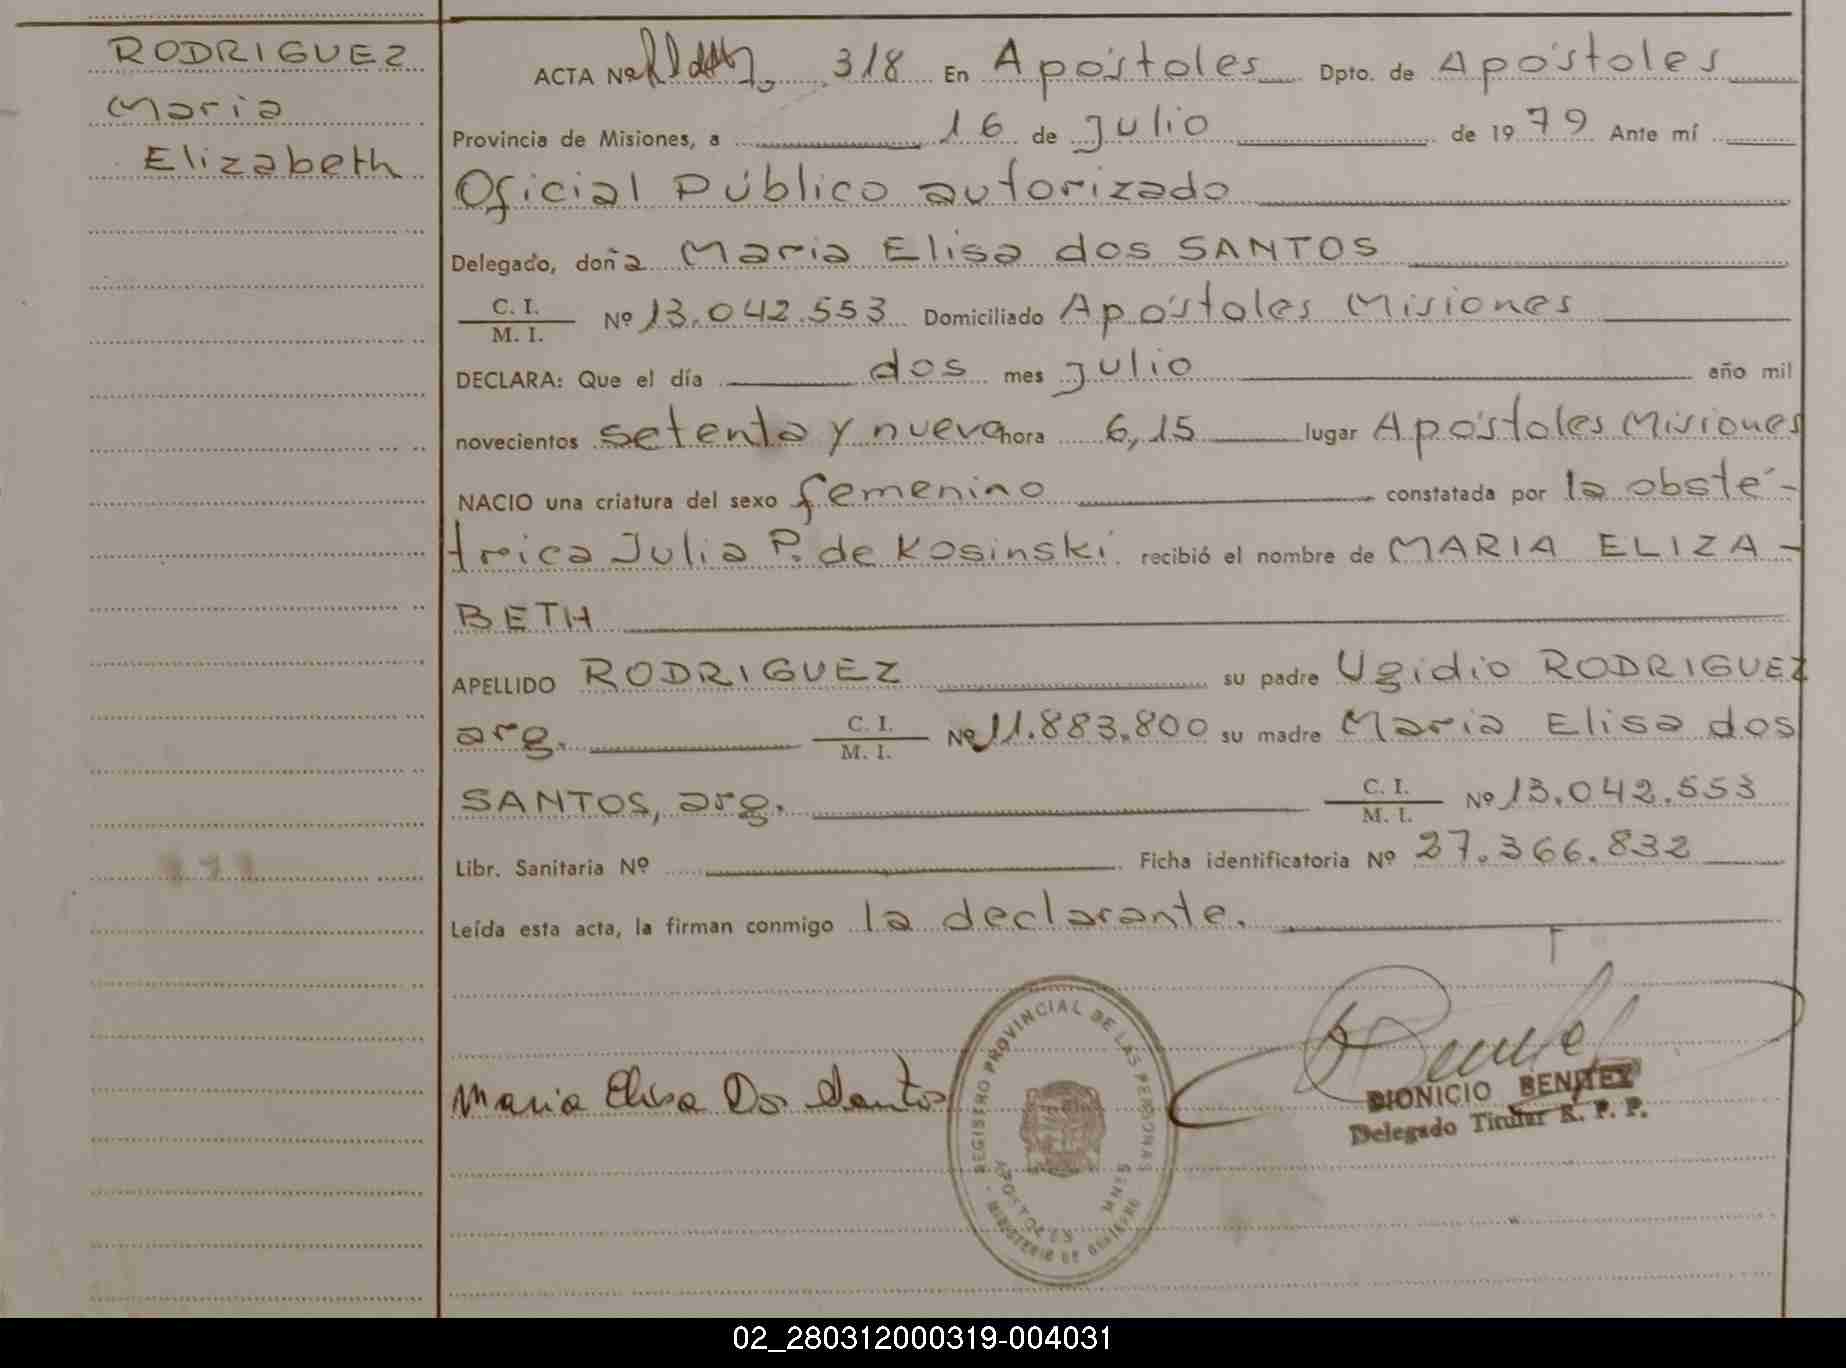 RODRIGUEZ
Maria
Elizabeth
ACTA Nº 318 En Apóstoles Dpto. de Apóstoles
Provincia de Misiones, a 16 de Julio de 1979 Ante mí
Oficial Público autorizado
Delegado, doña Maria Elisa dos SANTOS
C. I.
M. I. Nº 13.042.553 Domiciliado Apóstoles Misiones
DECLARA: Que el día dos mes Julio año mil
novecientos setenta y nueve hora 6,15 lugar Apóstoles Misiones
NACIO una criatura del sexo femenino constatada por la obsté-
trica Julia P. de Kosinski recibió el nombre de MARIA ELIZA-
BETH
APELLIDO RODRIGUEZ su padre Ugidio RODRIGUEZ
arg. C. I.
M. I. Nº 11.883.800 su madre Maria Elisa dos
SANTOS, arg. C. I.
M. I. Nº 13.042.553
Libr. Sanitaria Nº Ficha identificatoria Nº 27.366.832
Leída esta acta, la firman conmigo la declarante.
REGISTRO PROVINCIAL DE LAS PERSONAS
APOSTOLES MNES
MINISTERIO DE GOBIERNO
Maria Elisa Dos Santos
DIONICIO BENITEZ
Delegado Titular R. P. P.
02_280312000319-004031